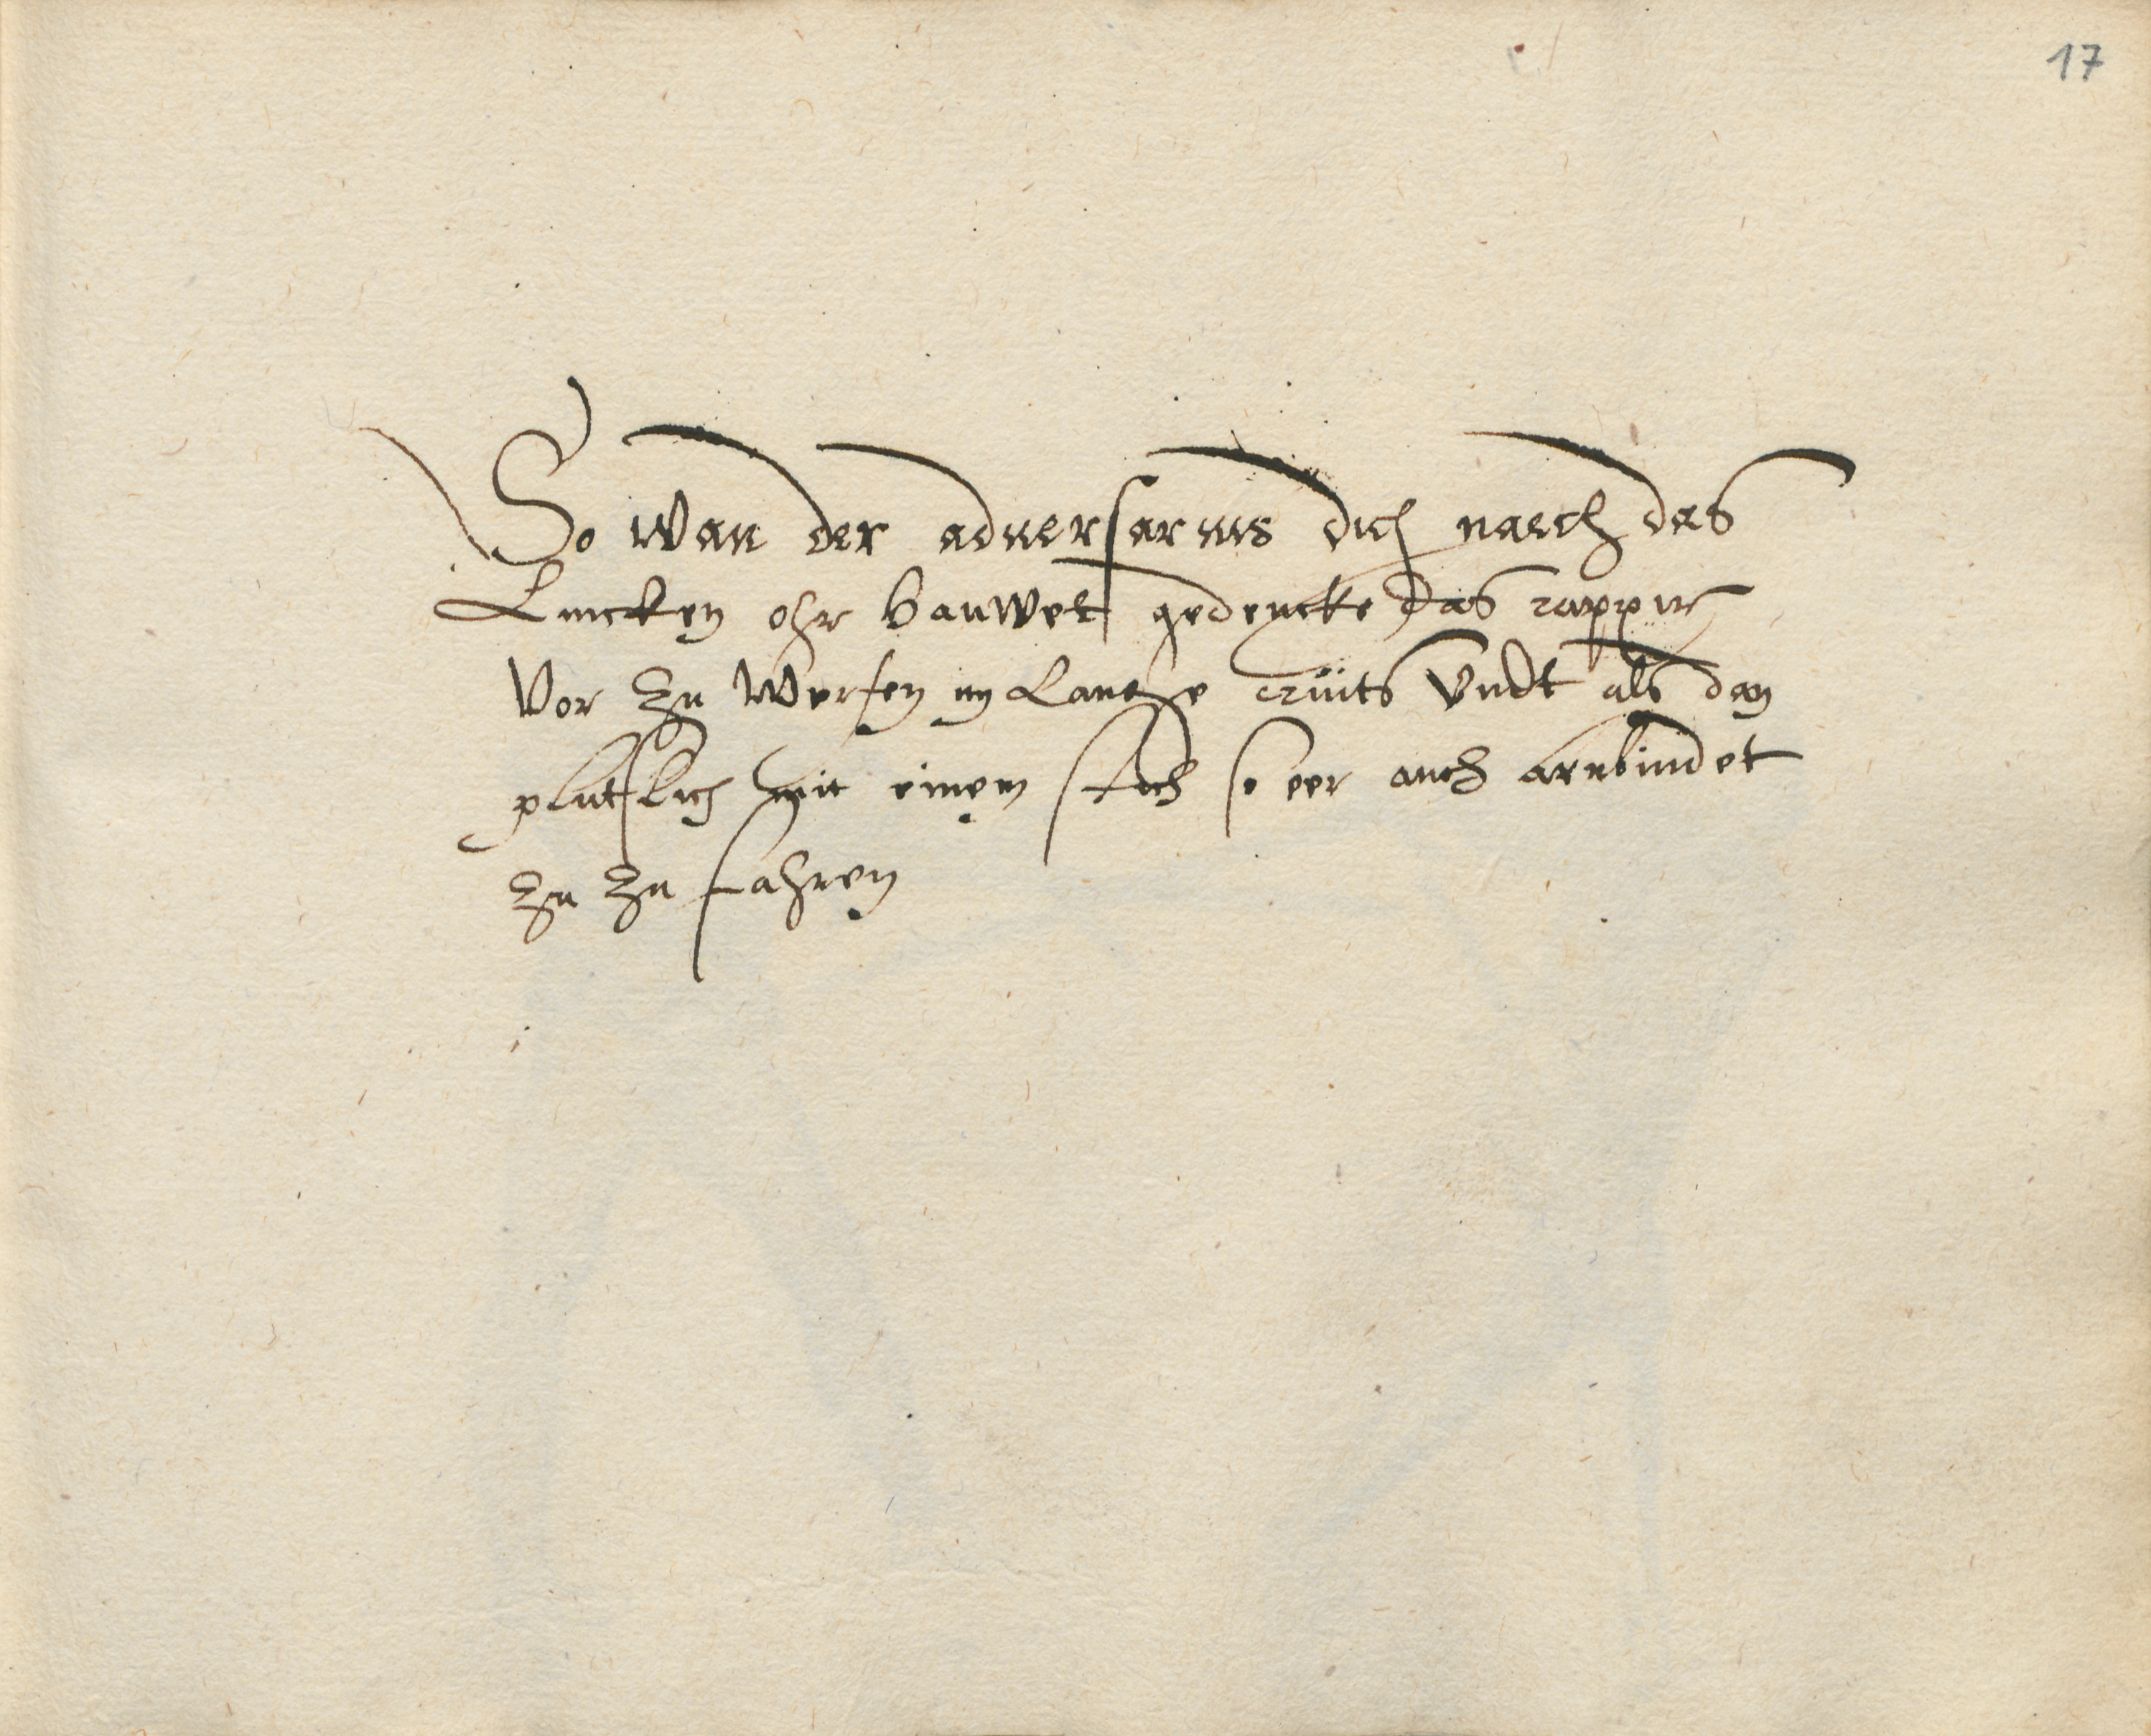 17
So wan der aduersarius dich naech das
Lincken ohr hauwet gedencke das rappir
Vor zu werfen im Lantze crüits Vndt als dan
plutzlich mit einem stich so eer auch anbindet
zu zu fahren